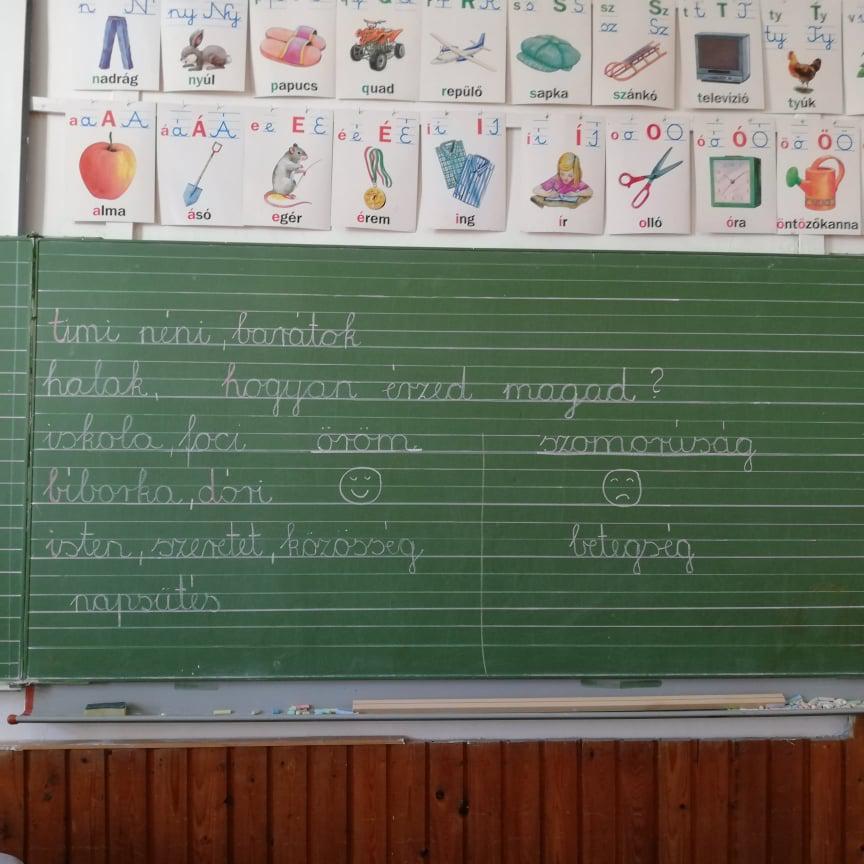 n N
ny Ny
sz Sz
sz Sz
t t T T
ty Ty
ty Ty
nadrág nyúl papucs quad repülő sapka szánkó televízió tyúk
a a A A
á á Á Á
e e E E
é é É É
i i I I
í í Í Í
o o O O
ó ó Ó Ó
ö ö Ö Ö
alma ásó egér érem ing ír olló óra öntözőkanna
timi néni, barátok
halak, hogyan érzed magad?
iskola, foci öröm szomorúság
biborka, dóri
isten, szeretet, közösség betegség
napsütés